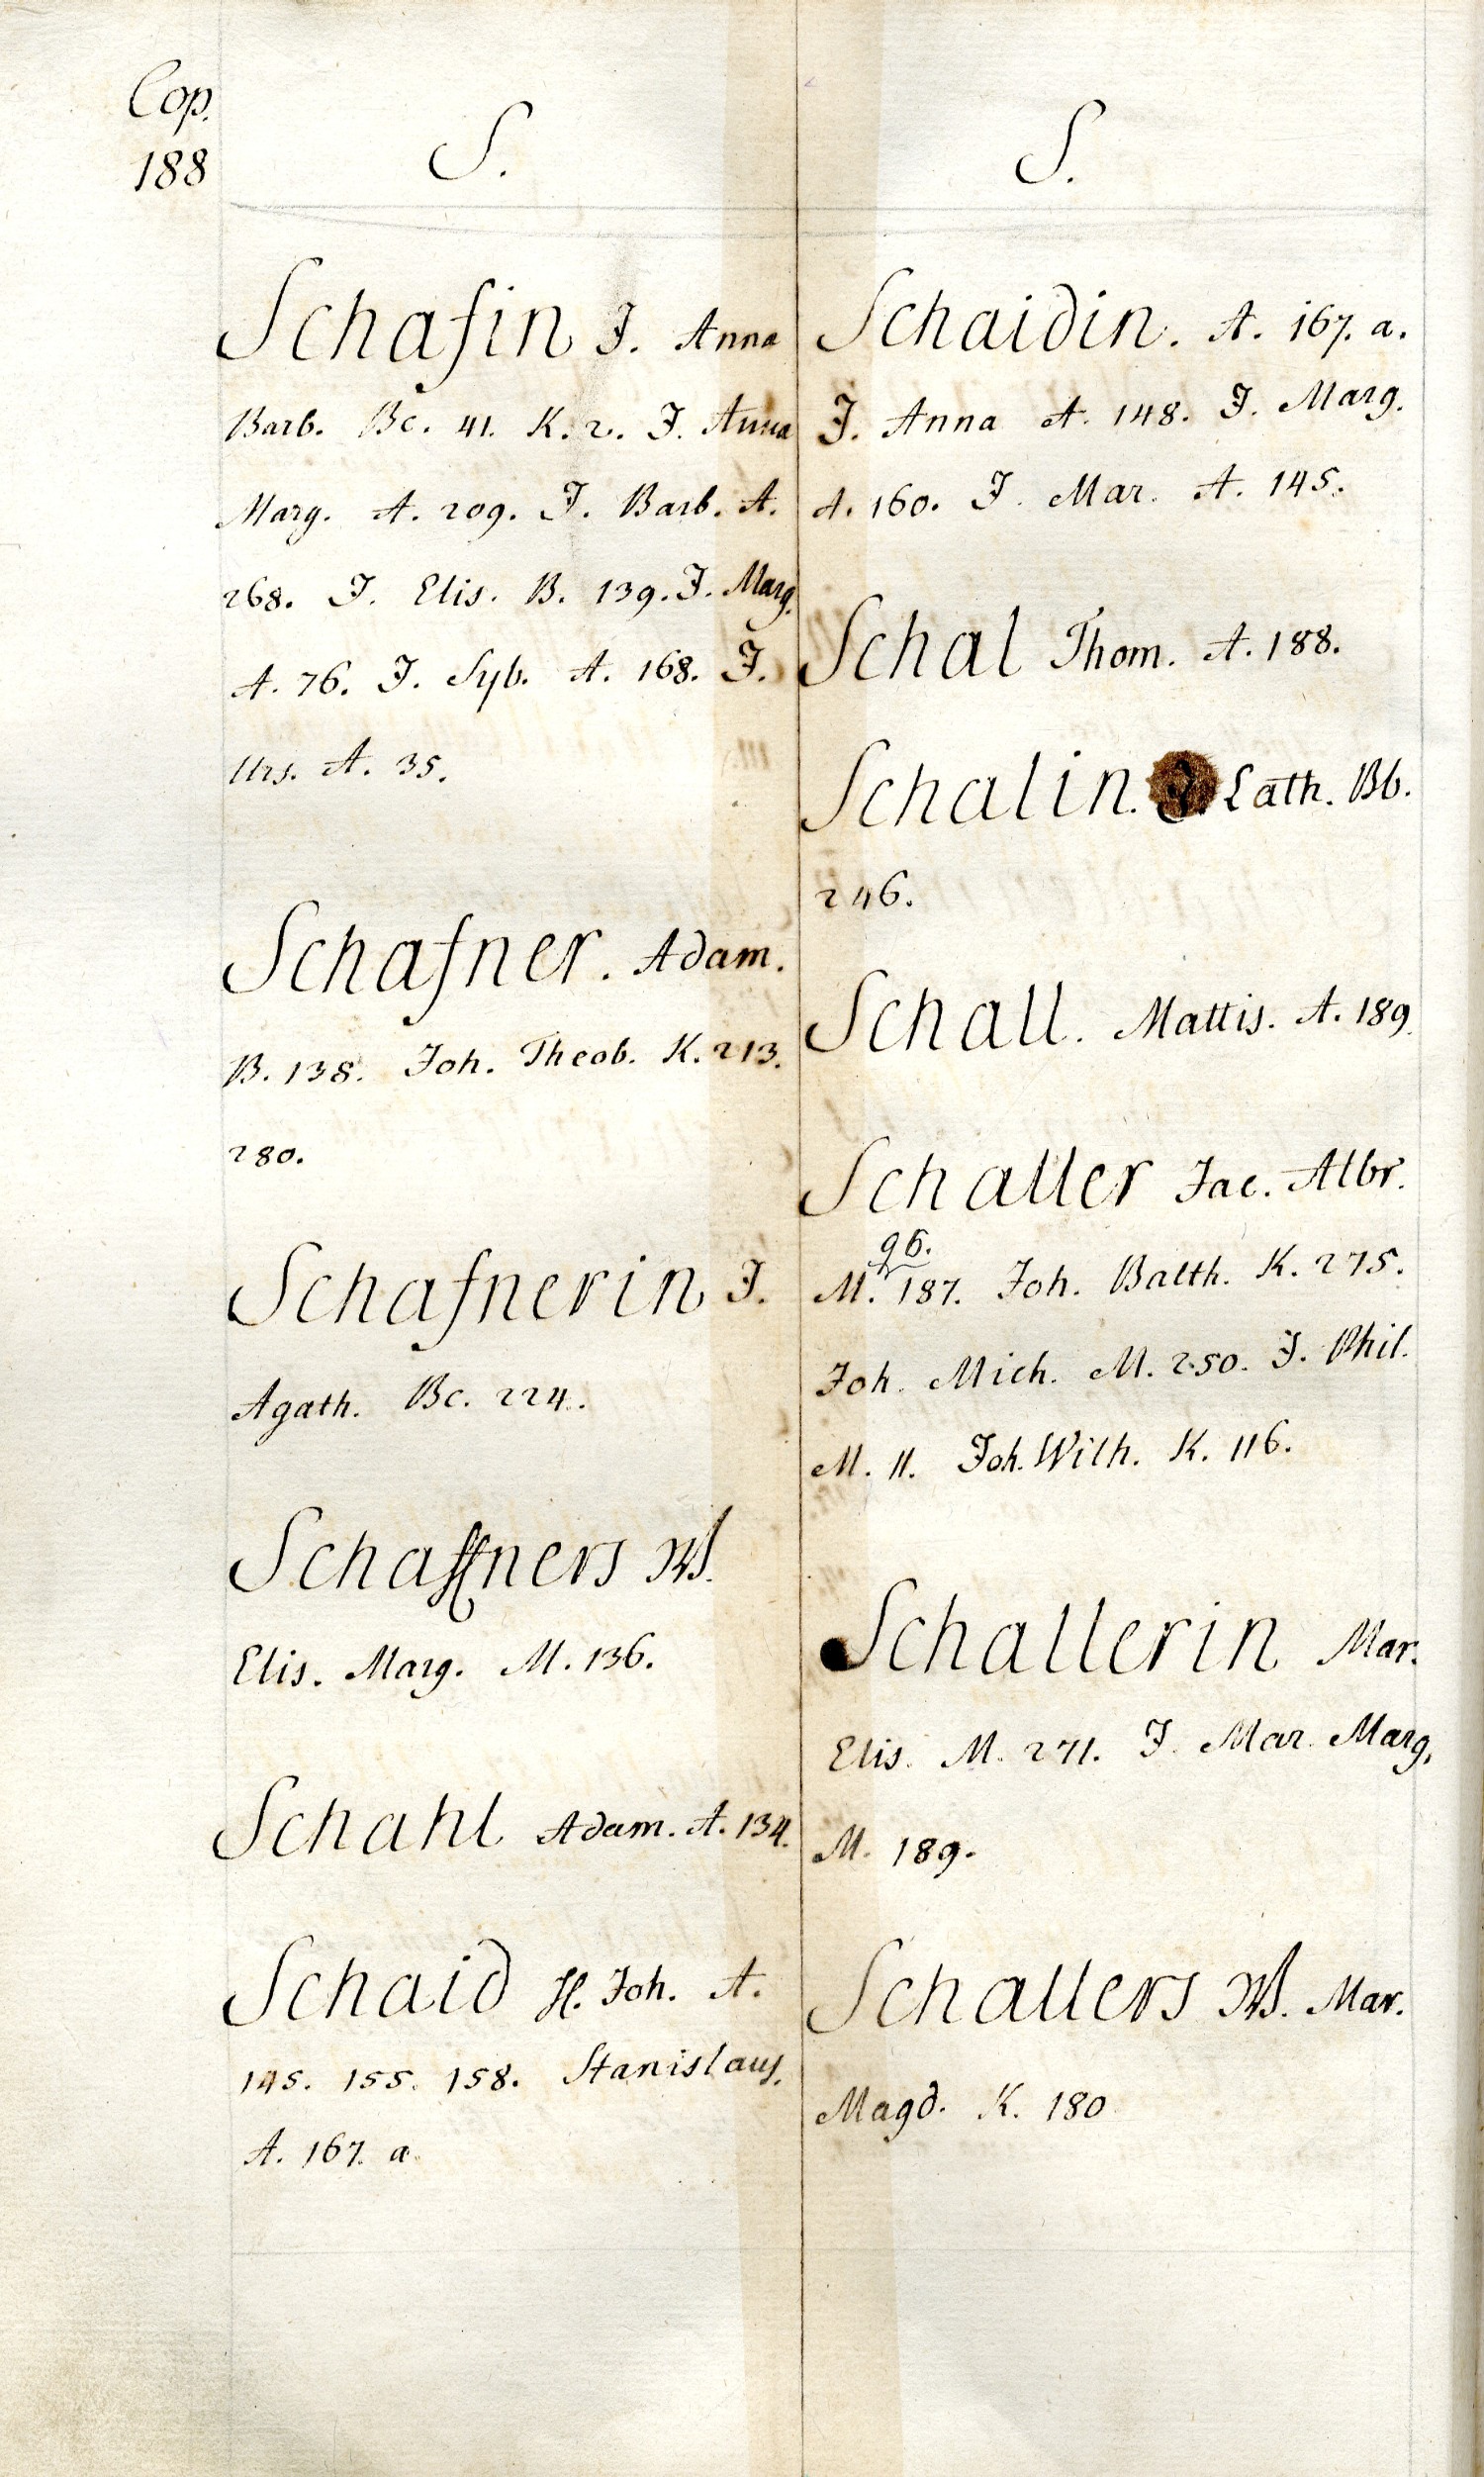 Cop.
188
S.
Schafin J. Anna
Barb. Bc. 41. K. 2. J. Anna
Marg. A. 209. J. Barb. A.
268. J. Elis. B. 139. J. Marg.
A. 76. J. Syb. A. 168. J.
Urs. A. 35.
Schafner. Adam.
B. 138. Joh. Theob. K. 213.
280.
Schafnerin J.
Agath. Bc. 224.
Schaffners W.
Elis. Marg. M. 136.
Schahl Adam. A. 134.
Schaid H. Joh. A.
145. 155. 158. Stanislaus.
A. 167. a.
S.
Schaidin. A. 167. a.
J. Anna A. 148. J. Marg.
A. 160. J. Mar. A. 145.
Schal Thom. A. 188.
Schalin. J. Cath. Bb.
246.
Schall. Mattis. A. 189.
Schaller Jac. Albr.
96.
M. 187. Joh. Balth. K. 275.
Joh. Mich. M. 250. J. Phil.
M. 11. Joh. Wilh. K. 116.
Schallerin Mar.
Elis. M. 271. J. Mar. Marg.
M. 189.
Schallers W. Mar.
Magd. K. 180